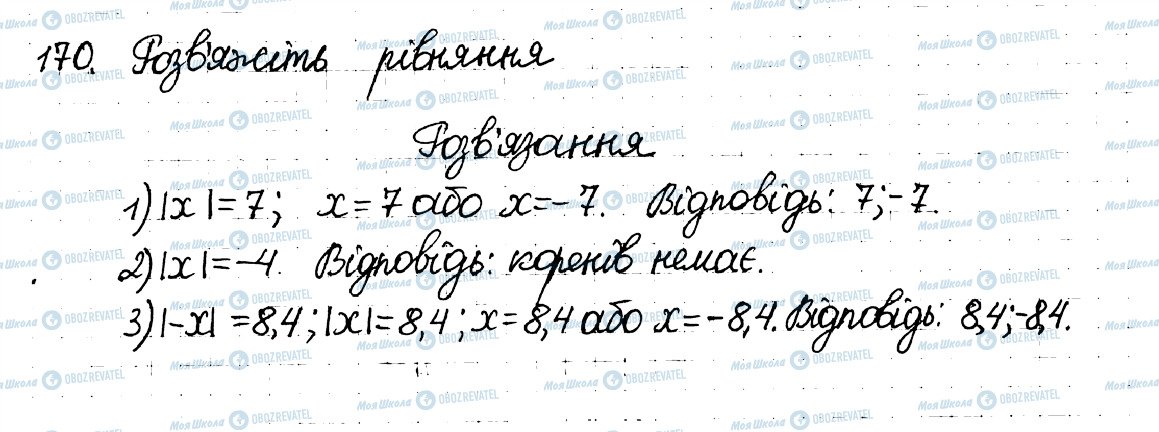 170. Розв'яжіть рівняння
Розв'язання
1) |x|=7; x=7 або x=-7. Відповідь: 7;-7.
2) |x|=-4. Відповідь: коренів немає.
3) |-x|=8,4; |x|=8,4; x=8,4 або x=-8,4. Відповідь: 8,4;-8,4.